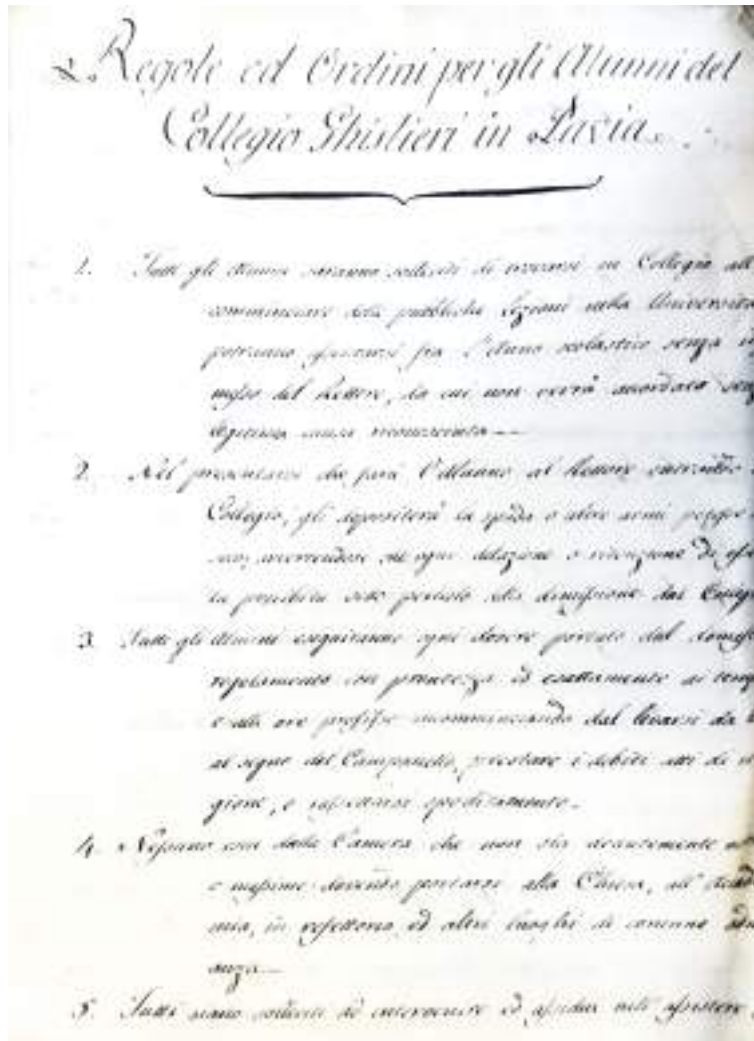 Regole ed Ordini per gli Alunni del
Collegio Ghislieri in Pavia.
1. Tutti gli Alunni saranno solleciti di trovarsi in Collegio all
cominciare delle pubbliche lezioni nella Università
potranno fra l'anno scolastico senza
messo del Rettore, da cui non verrà accordata senz
legitima causa riconosciuta
2. Nel presentarsi che farà l'Alunno al Rettore entrando
Collegio, gli depositerà la spada o altre armi
avvertendosi che ogni delazione o ritenzione di
proibita sotto pericolo della dimissione dal Colleg
3. Tutti gli Alunni eseguiranno ogni dovere portato dal
regolamento con prontezza ed esattamente ai temp
e alle ore prefisse incominciando dal levarsi da
al segno del Campanello, prestare i debiti atti di
gione, e speditamente.
4. Nessuno esca dalla Camera che non sia decentemente
e massime dovendo portarsi alla Chiesa, all'
mia, in refettorio, ed altri luoghi di comune
anza
5. Tutti siano solleciti ad intervenire ed assidui nell' assistere